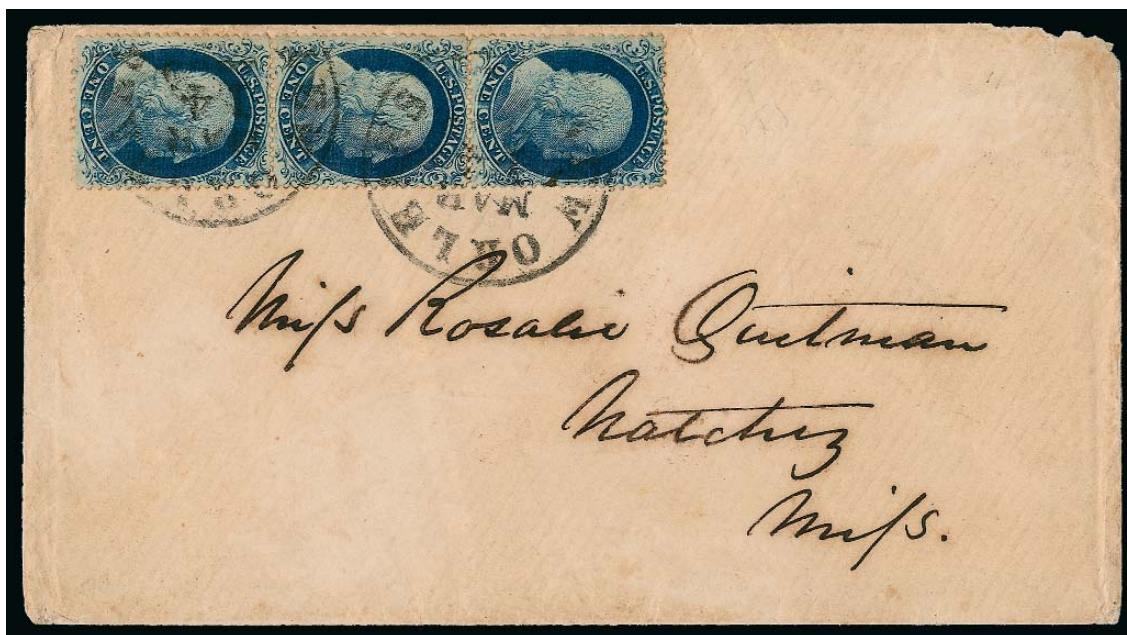 U.S. POSTAGE
ONE CENT
U.S. POSTAGE
ONE CENT
U.S. POSTAGE
ONE CENT
MAR
Miſs Rosalie Quitman
Natchez
Miſs.